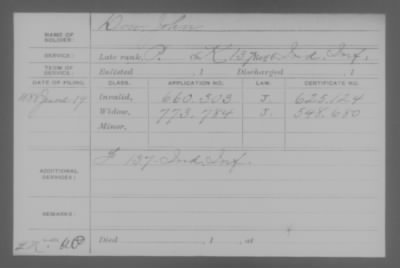 NAME OF SOLDIER: Dow, John
SERVICE: Late rank, P. K, 137 Reg Ind. Inf.
TERM OF SERVICE: Enlisted , 1 Discharged , 1
DATE OF FILING. CLASS. APPLICATION NO. LAW. CERTIFICATE NO.
1888 June 19 Invalid, 660.303 J. 625.124
Widow, 773.784 J. 548.680
Minor,
ADDITIONAL SERVICES: F 137 Ind. Inf.
REMARKS:
Died , 1 , at